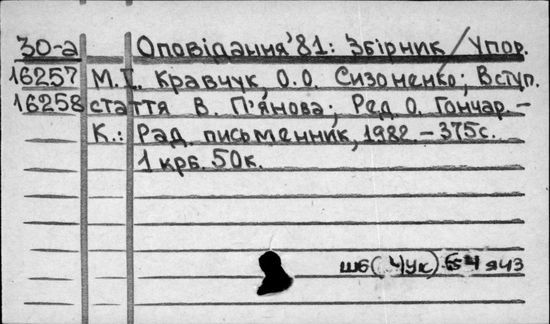 30-а Оповідання'81: Збірник / Упор.
16257 М.Т. Кравчук, О.О. Сизоненко; Вступ.
16258 стаття В. П'янова; Ред. О. Гончар. –
К.: Рад. письменник, 1982. – 375с.
1 крб. 50к.
Ш6(4Ук) 54 я43